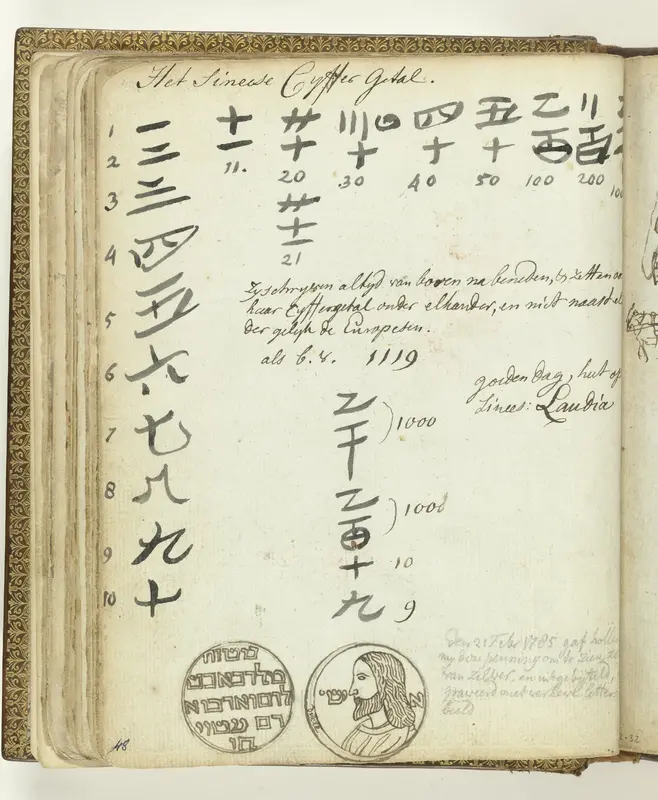 Het Sineese Cyffer Getal.
1 一
2 二
3 三
4 四
5 五
6 六
7 七
8 八
9 九
10 十
十一
11.
廿十
20
廿十一
21
三十
30
四十
40
五十
50
乙百
100
百
200
Zy schryven altyd van boven na beneden, & zetten
haar Cyffergetal onder elkander, en niet naast el
der gelyk de Europesen.
als b.v. 1119
goeden dag, hiet op
Sinees: Laudia
乙千 1000
乙百 1000
十 10
九 9
משיח
מלך בא בש
לום ואדם
דם עשוי
חי
ישו
Den 21 Febr 1785 gaf
my deze penning om te zien,
van zilver, en uitgebyteld,
graveerd met verheve letter
beeld
48